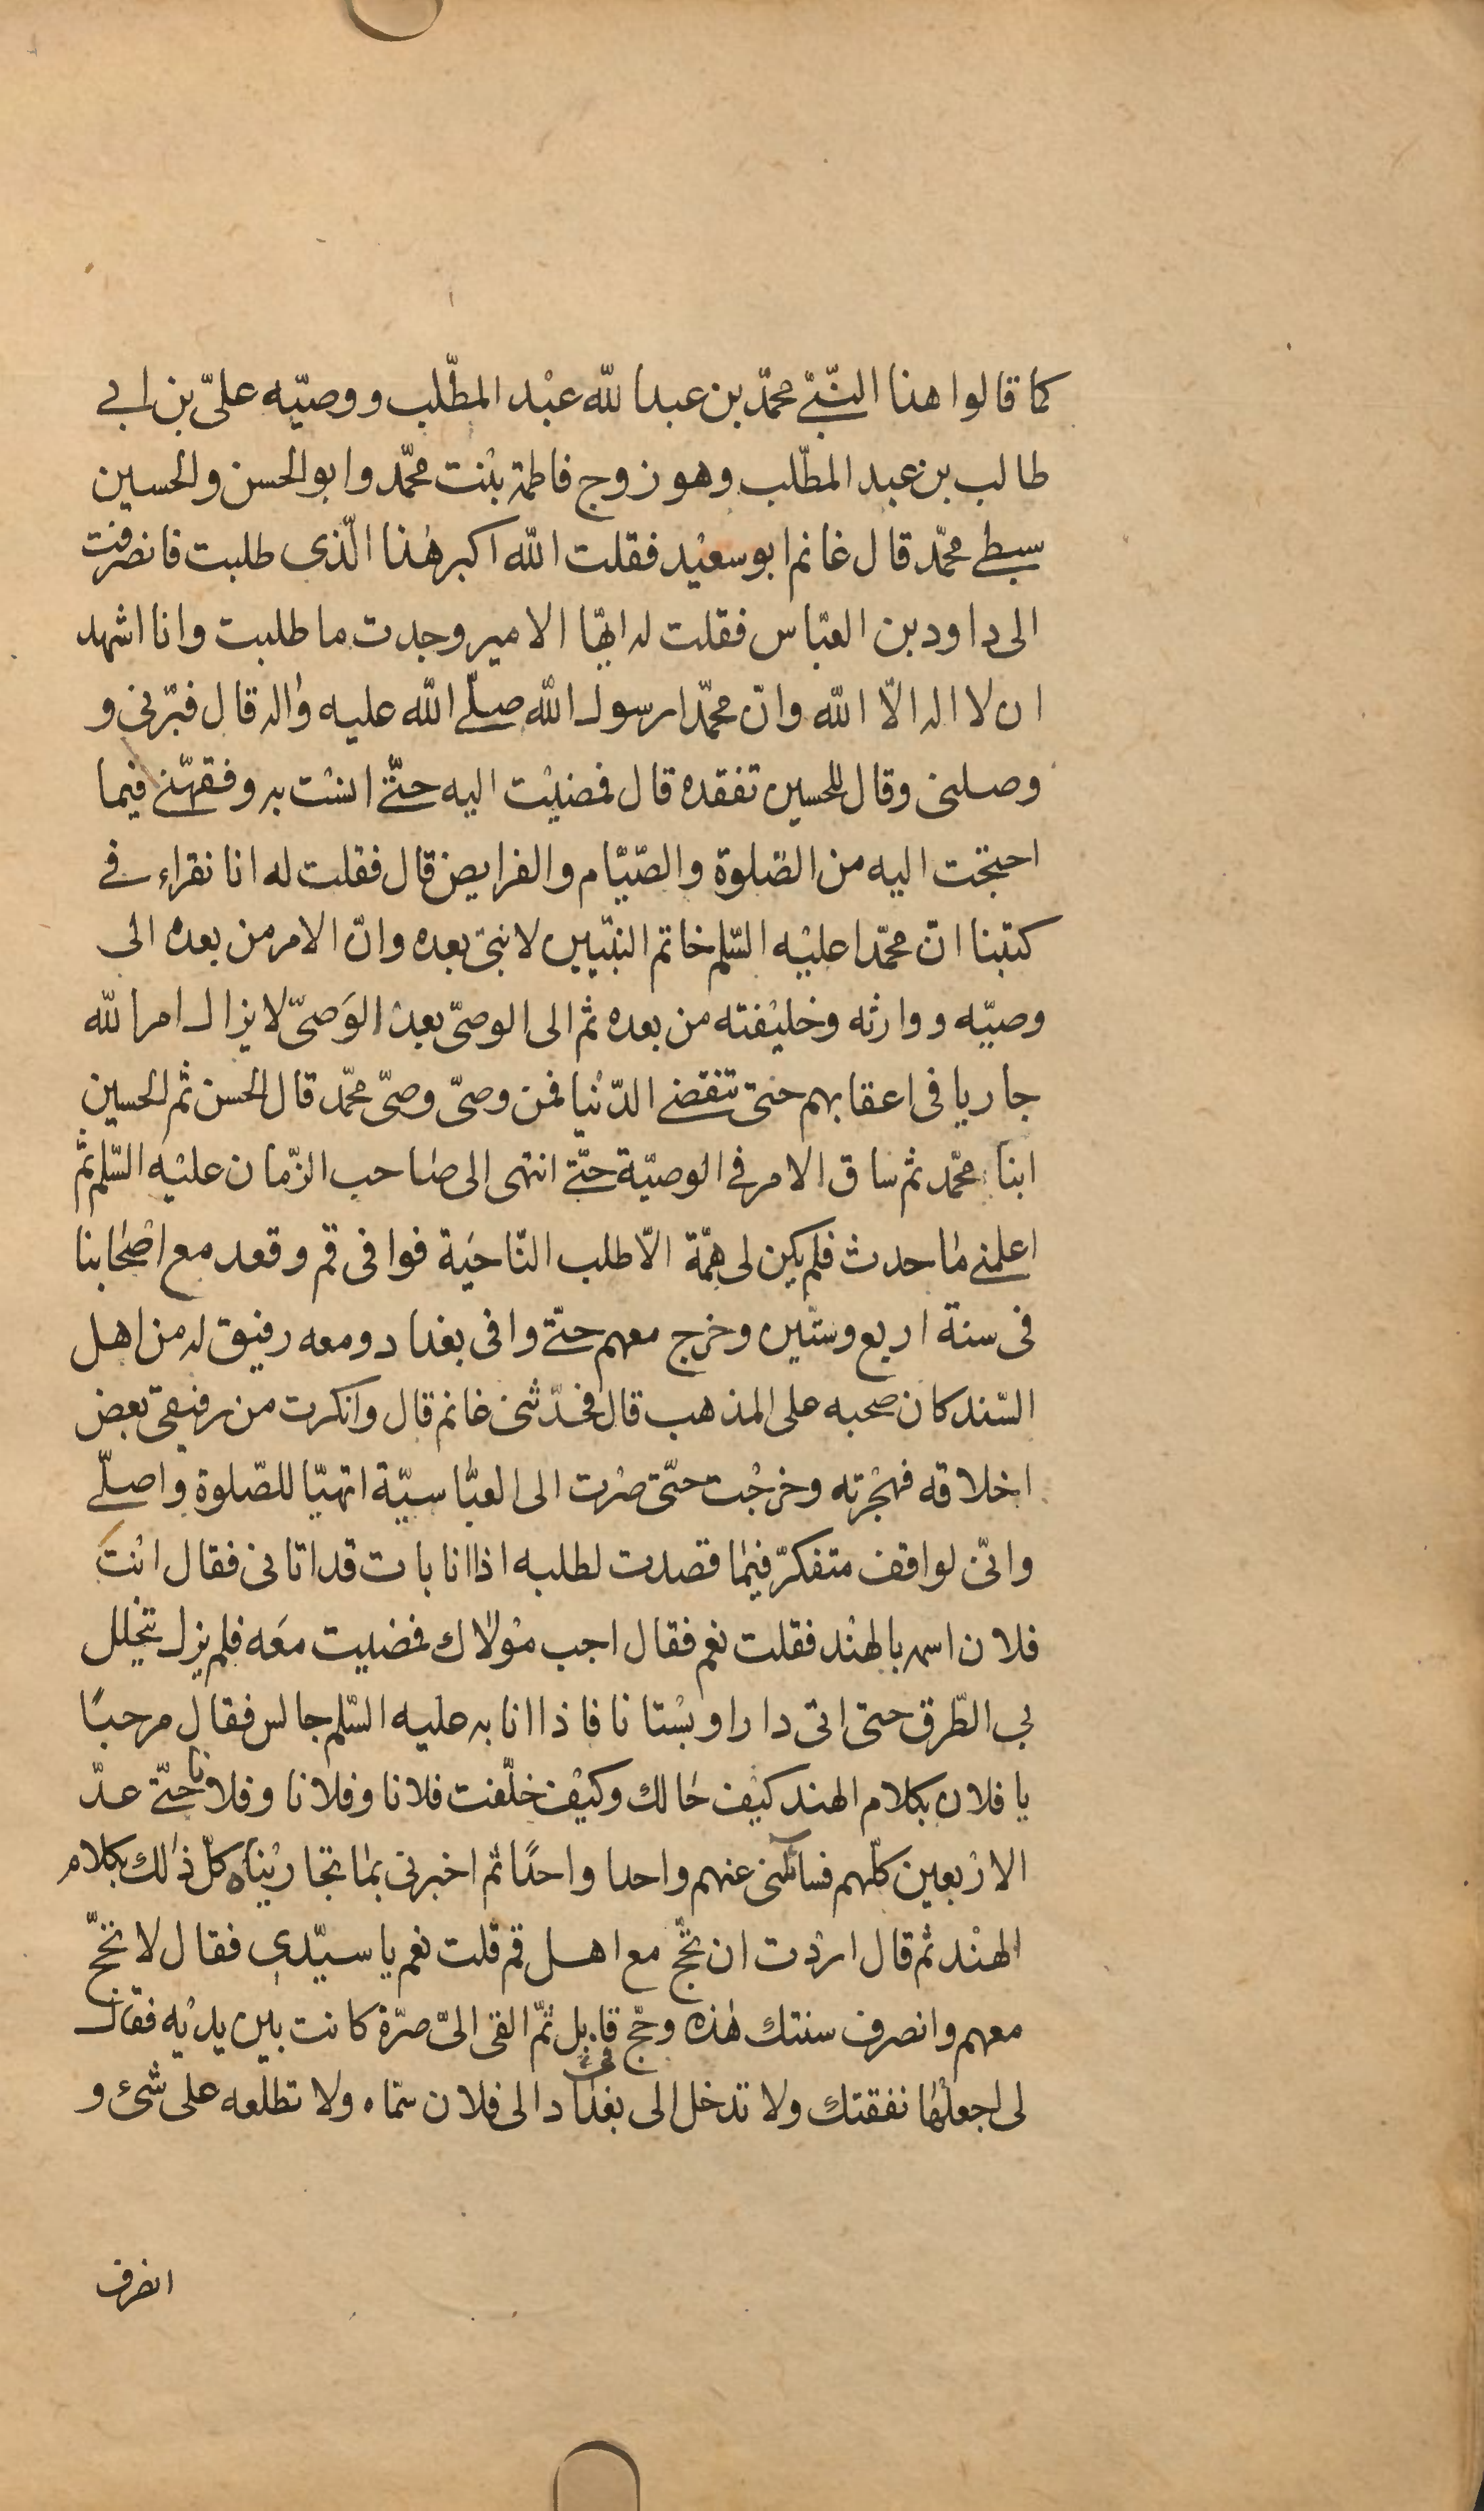 كما قالوا هذا النّبيّ محمّد بن عبدا لله عبْد المطّلب ووصيّه علىّ بن ابى
طالب بن عبد المطّلب وهو زوج فاطمة بنْت محمّد وابو الحسن والحسين
سبطى محمّد قال غانم ابو سعيْد فقلت الله اكبر هٰذا الّذى طلبت فانصرفت
الى داود بن العبّاس فقلت له ايّها الامير وجدت ما طلبت وانا اشهد
ان لا اله الّا الله وانّ محمّدا رسول الله صلّى الله عليه واٰله قال فبّرنى و
وصلنى وقال للحسين تفقده قال فمضيْت اليه حتّى انسْت به وفقهّنى فيما
احتجت اليه من الصّلوة والصّيّام والفرايض قال فقلت له انا نقراء فى
كتبنا انّ محمّدا عليْه السّلم خاتم النبّيين لا نبىّ بعده وانّ الامر من بعده الى
وصيّه ووارثه وخليْفته من بعده ثم الى الوصىّ بعدْ الوَصىّ لا يزال امر الله
جاريا فى اعقابهم حتى تنقضى الدّنْيا فمن وصىّ وصىّ محمّد قال الحسن ثم الحسين
ابنا محمّد ثم ساق الامر فى الوصيّة حتّى انتهى الى صٰاحب الزّمان عليْه السّلم ثمّ
اعلمنى مٰا حدث فلم يكن لى همّة الّا طلب النّاحيَة فوافى قم وقعد مع اصْحٰابنا
فى سنة اربع وستّين وخرج معهم حتّى وافى بغداد ومعه رفيق له من اهل
السّند كان صحبه على المذهب قال فحدّثنى غانم قال وانكرت من رفيقى بعض
اخلاقه فهجْرته وخرجْت حتّى صرْت الى العبّٰاسيّة اتهيّا للصّلوة واصلّى
وانّى لواقف متفكرّ فيمٰا قصدت لطلبه اذا انا باٰت قد اتانى فقال انْتَ
فلان اسمه بالهنْد فقلت نعم فقال اجب موْلاٰك فمضيت معَه فلم يزل يتخلل
بى الطّرق حتى اتى دارا وبسْتانا فاذا انا به عليه السّلم جالس فقال مرحبًا
يا فلان بكلام الهند كيْف حٰالك وكيْف خلّفت فلانا وفلانا وفلانا حتّى عدّ
الارْبعين كلّهم فسائلنى عنهم واحدا واحدًا ثم اخبرنى بمٰا تجاريْنٰاه كلّ ذٰلك بكلام
الهنْد ثم قال اردْت ان تحجّ مع اهل قم قلت نعم يا سيّدى فقال لا تحجّ
معهم وانصرف سنتك هٰذه وحجّ قابل ثمّ القى الىّ صرّة كانت بين يديْه فقال
لى اجعلْهٰا نفقتك ولا تدخل الى بغدٰاد الى فلان سمّاه ولا تطلعه على شىء و
انصرف